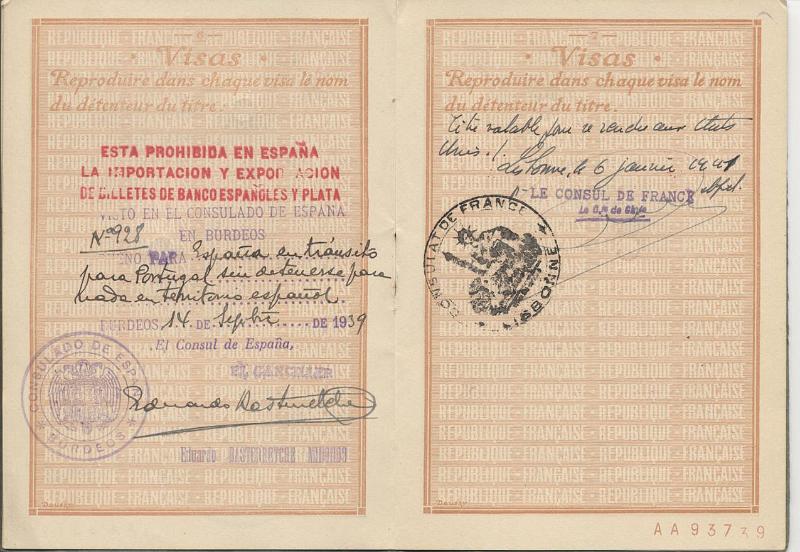 6
Visas
Reproduire dans chaque visa le nom
du détenteur du titre:
ESTA PROHIBIDA EN ESPAÑA
LA IMPORTACION Y EXPORTACION
DE BILLETES DE BANCO ESPAÑOLES Y PLATA
VISTO EN EL CONSULADO DE ESPAÑA
Nº 928
EN BURDEOS
PARA España en tránsito
para Portugal sin detenerse para
nada en territorio español
BURDEOS 14 DE Septbre DE 1939
El Consul de España,
EL CANCILLER
CONSULADO DE ESPAÑA
BURDEOS
Eduardo
7
Visas
Reproduire dans chaque visa le nom
du détenteur du titre.
Titre valable pour se rendre aux Etats
Unis. /.
Lisbonne, le 6 janvier 1941
LE CONSUL DE FRANCE
CONSULAT DE FRANCE
LISBONNE
AA93739